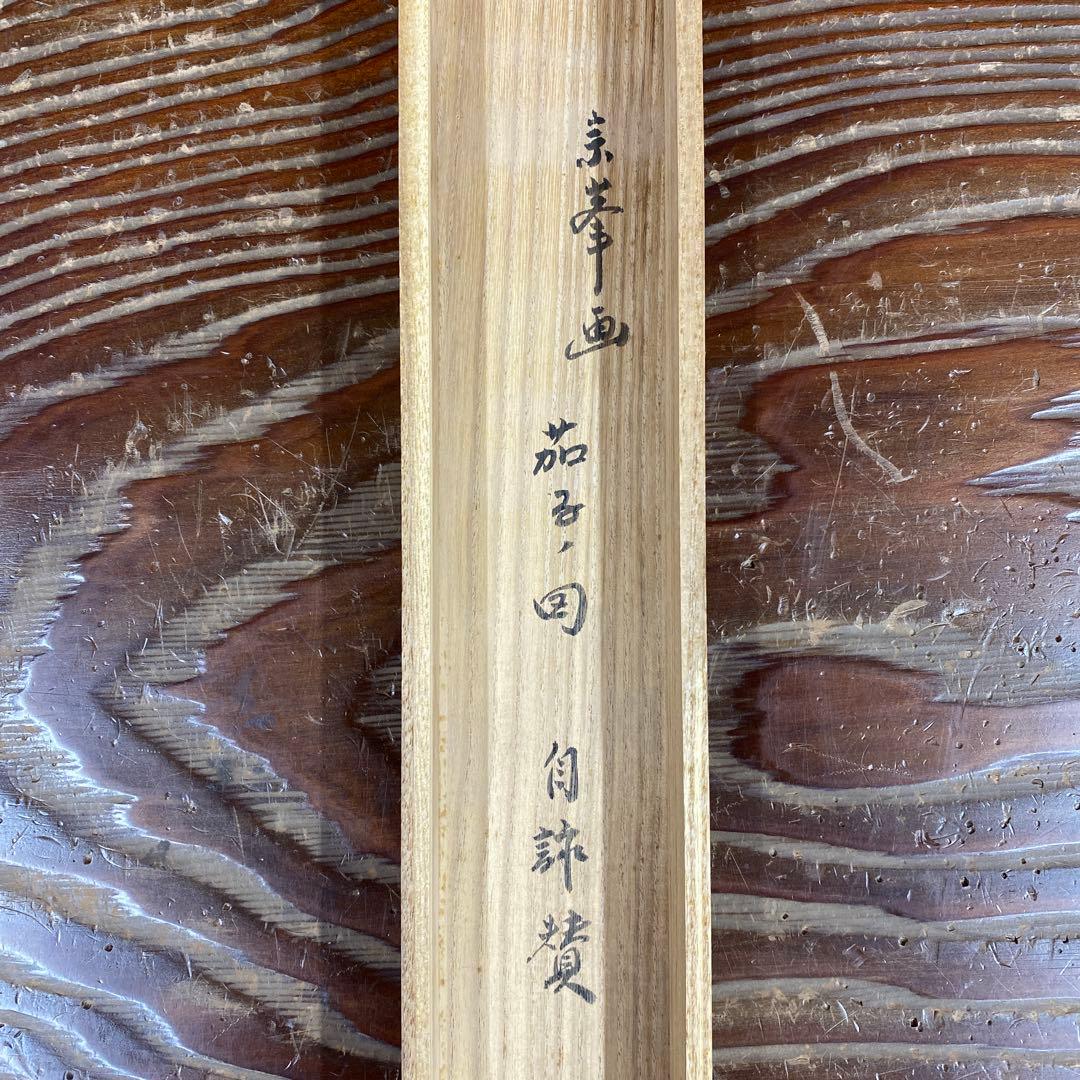 宗峯画 茄子ノ図 自詠賛